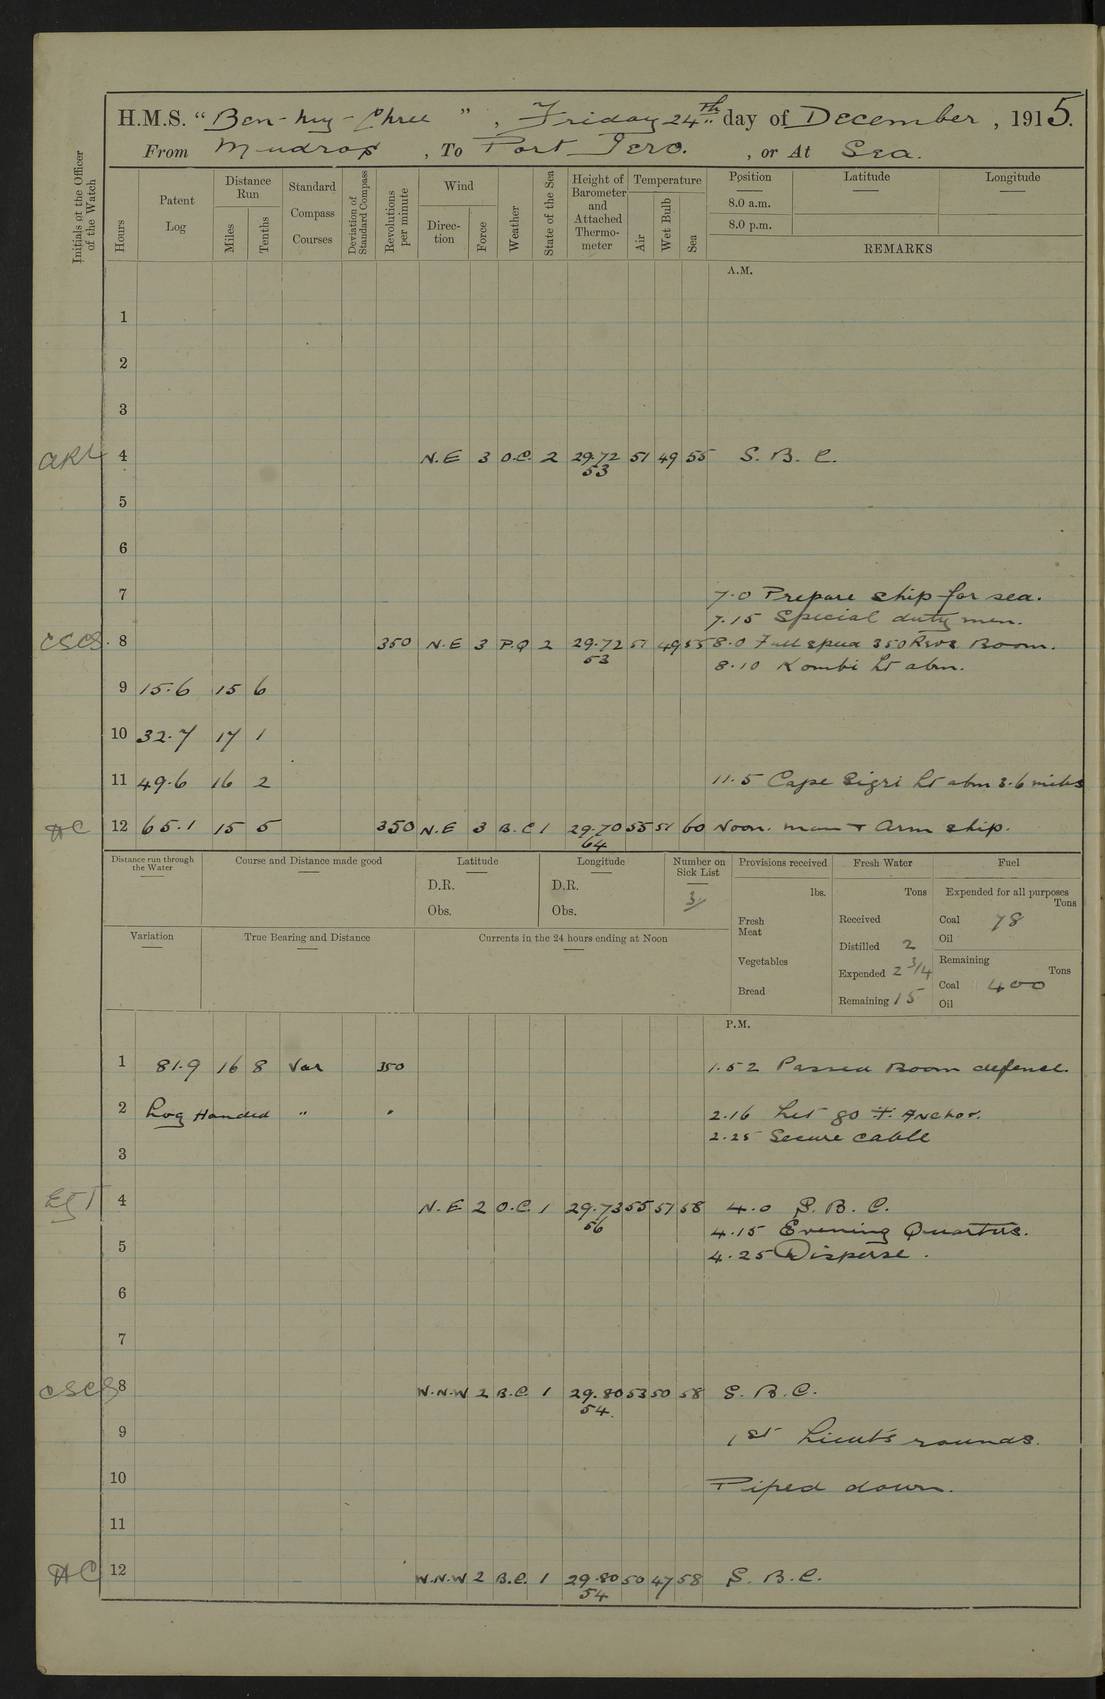 H.M.S. "Ben-my-Chree", Friday 24th day of December, 1915.
From Mudros, To Port Iero., or At Sea.
Initials of the Officer of the Watch
Hours
Patent Log
Distance Run
Miles
Tenths
Standard Compass Courses
Deviation of Standard Compass
Revolutions per minute
Wind
Direction
Force
Weather
State of the Sea
Height of Barometer and Attached Thermometer
Temperature
Air
Wet Bulb
Sea
Position Latitude Longitude
8.0 a.m.
8.0 p.m.
REMARKS
A.M.
1
2
3
4 N.E 3 O.C. 2 29.72 51 49 55 S. B. C.
53
5
6
7 7.0 Prepare ship for sea.
7.15 Special duty men.
CSCS. 8 350 N.E 3 P.Q 2 29.72 51 49 55 8.0 Full speed 350 Revs Boom.
53 8.10 Kombi Lt abm.
9 15.6 15 6
10 32.7 17 1
11 49.6 16 2 11.5 Cape Sigri Lt abm 3.6 miles
HC 12 65.1 15 5 350 N.E 3 B.C 1 29.70 55 51 60 Noon. man & Arm ship.
64
Distance run through the Water
Course and Distance made good
Latitude
D.R.
Obs.
Longitude
D.R.
Obs.
Number on Sick List
3/
Provisions received
lbs.
Fresh Meat
Vegetables
Bread
Fresh Water
Tons
Received
Distilled 2
Expended 2 3/4
Remaining 15
Fuel
Expended for all purposes
Tons
Coal 78
Oil
Remaining
Tons
Coal 400
Oil
Variation
True Bearing and Distance
Currents in the 24 hours ending at Noon
P.M.
1 81.9 16 8 Var 350 1.52 Passed Boom defence.
2 Log Handed " " 2.16 Let go Anchor.
2.25 Secure cable
3
EJT 4 N.E 2 O.C. 1 29.73 55 51 58 4.0 S. B. C.
56 4.15 Evening Quarters.
5 4.25 Disperse.
6
7
CSCS 8 W.N.W 2 B.C. 1 29.80 53 50 58 S. B. C.
54.
9 1st Lieut's rounds.
10 Piped down.
11
HC 12 W.N.W 2 B.C. 1 29.80 50 47 58 S. B. C.
54